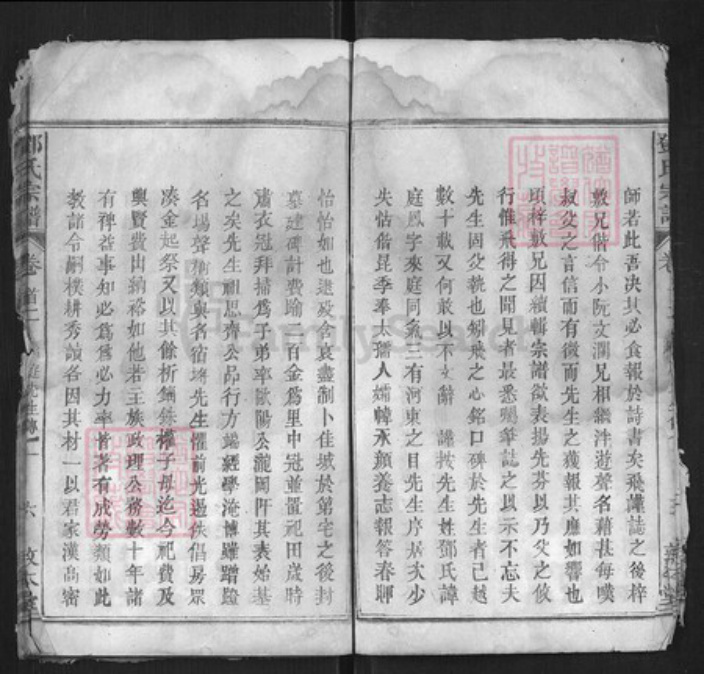 鄧氏宗譜
師若此吾決其必食報於詩書矣飛謹誌之後梓
敷兄偕令小阮文瀾兄相繼泮遊聲名藉甚每嘆
叔父之言信而有徵而先生之獲報其應如響也
項梓敷兄因續輯宗譜欲表揚先芬以乃父之攸
行惟飛得之聞見者最悉囑筆誌之以示不忘夫
先生固父執也矧飛之心銘口碑於先生者已越
數十載又何敢以不文辭 謹按先生姓鄧氏諱
庭鳳字來庭同氣三有河東之目先生序居次少
失怙偕昆季奉太孺人孀幃承顏養志報答春暉
怡怡如也逮歿含哀盡制卜佳城於第宅之後封
墓建碑計費踰二百金為里中冠並置祀田歲時
肅衣冠拜掃為子弟率歐陽公瀧岡阡其表始基
之矣先生祖思齊公品行方端經學淹博雖蹭蹬
名場聲稱頻與名宿埒先生懼前光遏佚倡房眾
湊金起祭又以其餘析錙銖權子母迄今祀費及
興賢費出納裕如他若主族政理公務數十年諸
有裨益事知必為為必力率皆著有成勞類如此
教諸令嗣樸耕秀讀各因其材一以君家漢高密
鄧氏宗譜
卷首二
庭先生傳
六
敦本堂